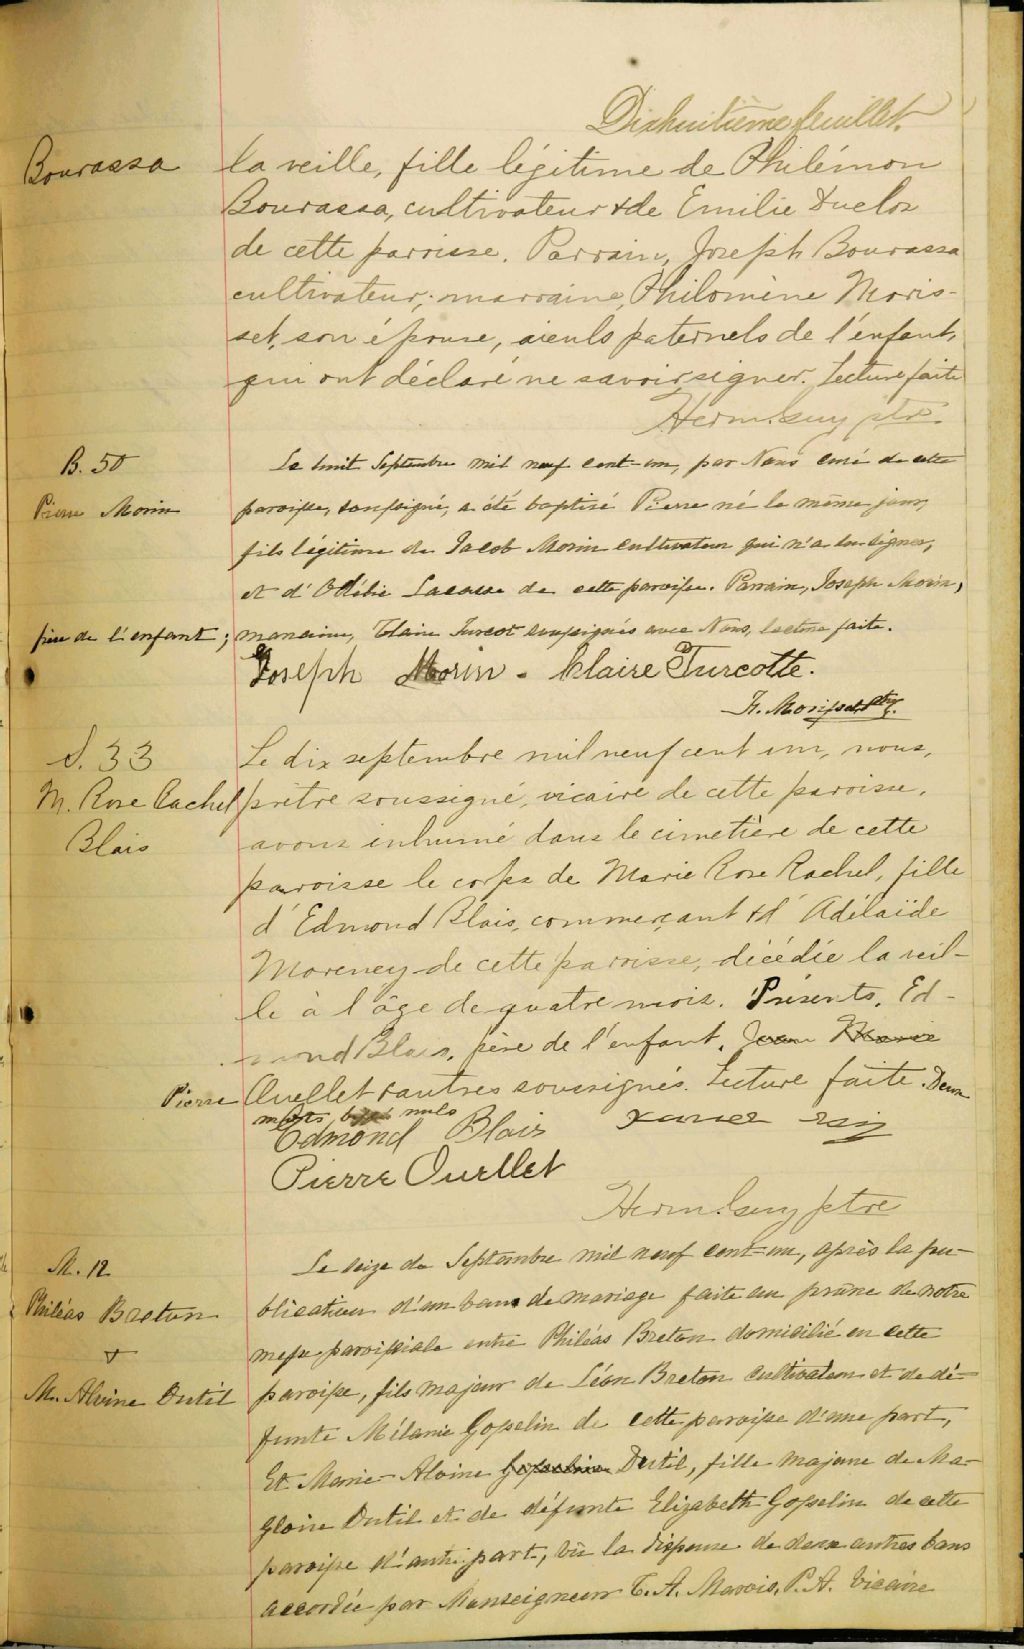 Dixhuitième feuillet.
Bourassa
la veille, fille légitime de Philémon
Bourassa, cultivateur & de Emilie Duclos
de cette paroisse. Parrain, Joseph Bourassa
cultivateur; marraine, Philomène Moris-
set, son épouse, aieuls paternels de l'enfant,
qui ont déclaré ne savoir signer. Lecture faite
Herm. Guy ptre.
B. 50
Pierre Morin
Le huit Septembre mil neuf cent-un, par Nous curé de cette
paroisse, soussigné, a été baptisé Pierre né le même jour,
fils légitime de Jacob Morin cultivateur qui n'a su signer,
et d'Odélie Lacasse de cette paroisse. Parrain, Joseph Morin,
de l'enfant; marraine, Claire Turcot soussignés avec Nous, lecture faite.
Joseph Morin - Claire Turcotte.
Morisset, Ptre.
S. 33
M. Rose Rachel
Blais
Le dix septembre mil neuf cent un, nous,
prêtre soussigné, vicaire de cette paroisse,
avons inhumé dans le cimetière de cette
paroisse le corps de Marie Rose Rachel, fille
d'Edmond Blais, commerçant & d'Adélaïde
Morency de cette paroisse, décédée la veil-
le à l'âge de quatre mois. Présents, Ed-
mond Blais, père de l'enfant,
Pierre Ouellet & autres soussignés. Lecture faite. Deux
mots nuls
Edmond Blais
Pierre Ouellet
Herm. Guy ptre
M. 12
Philéas Breton
&
M. Alvine Dutil
Le seize de Septembre mil neuf cent-un, après la pu-
blication d'un banc de mariage faite au prône de notre
messe paroissiale entre Philéas Breton domicilié en cette
paroisse, fils majeur de Léon Breton cultivateur et de dé-
funte Mélanie Gosselin de cette paroisse d'une part,
Et Marie-Alvine Dutil, fille majeure de Ma-
gloire Dutil et de défunte Elizabeth Gosselin de cette
paroisse d'autre part, vu la dispense de deux autres bans
accordée par Monseigneur C. A. Marois, P. A. Vicaire